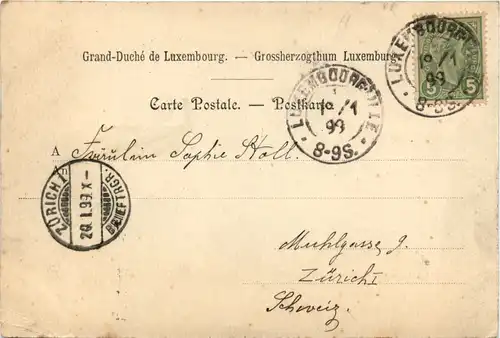 Grand-Duché de Luxembourg. — Grossherzogthum Luxemburg
Carte Postale. — Postkarte
LUXEMBOURG-VILLE
1
99
8-9S.
LUXEMBOURG
99
8-9S.
5 5
A Fräulein Sophie Stoll.
ZÜRICH
20.I.99.X-
BRIEFTRGR.
Muhlgasse 9.
Zürich I
Schweiz.